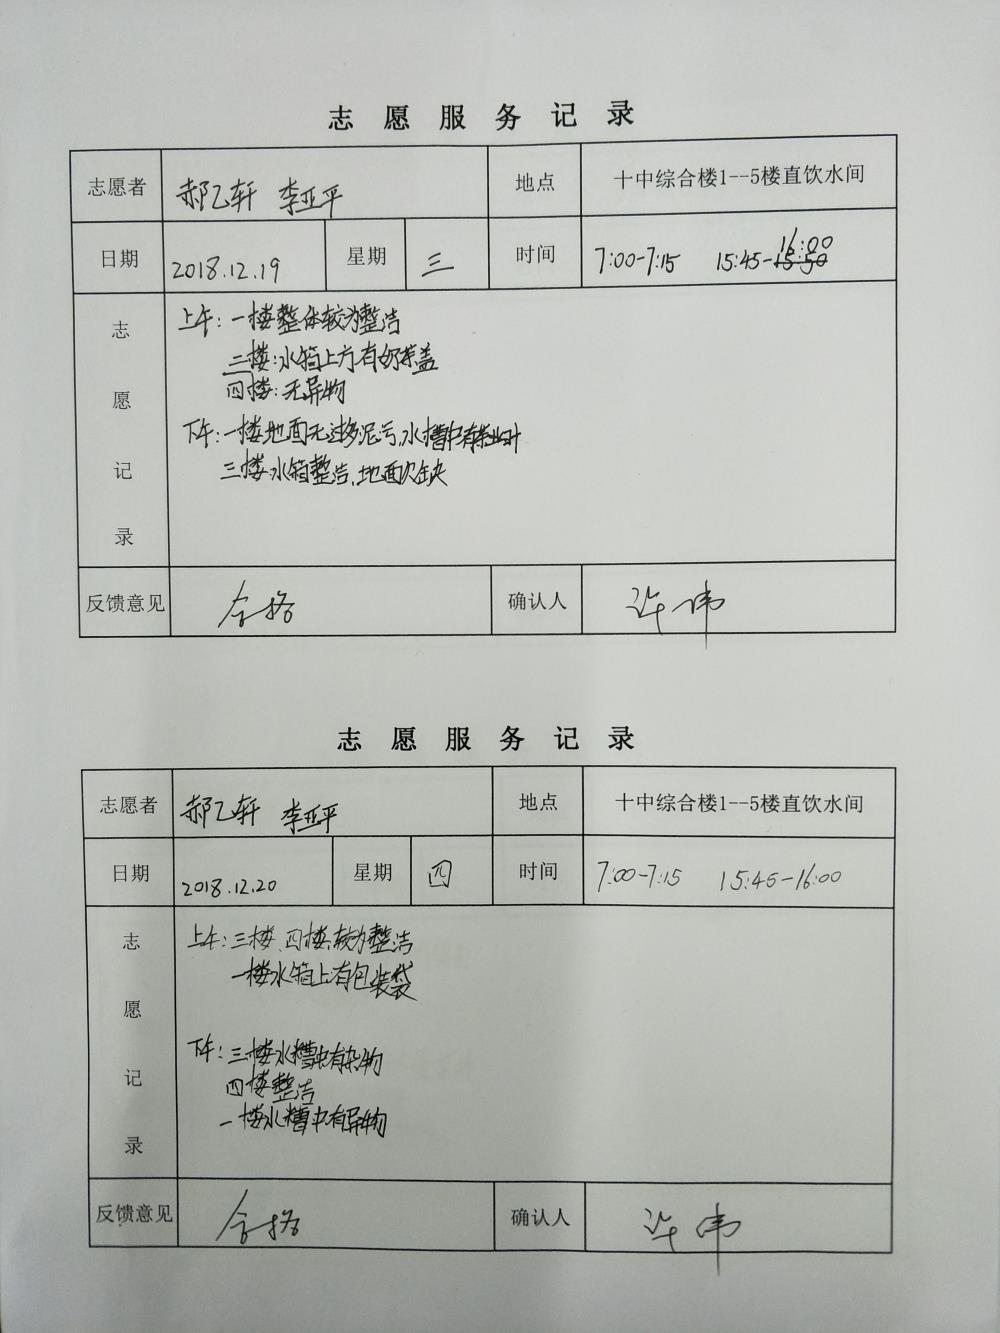 志愿服务记录
志愿者 郝乙轩 李亚平 地点 十中综合楼1--5楼直饮水间
日期 2018.12.19 星期 三 时间 7:00-7:15 15:45-15:50 16:00
志愿记录
上午：一楼整体较为整洁
三楼：水箱上方有奶茶盖
四楼：无异物
下午：一楼地面无过多泥污，水槽中有茶叶
三楼：水箱整洁，地面欠缺
反馈意见 合格 确认人 许伟
志愿服务记录
志愿者 郝乙轩 李亚平 地点 十中综合楼1--5楼直饮水间
日期 2018.12.20 星期 四 时间 7:00-7:15 15:45-16:00
志愿记录
上午：三楼、四楼较为整洁
一楼水箱上有包装袋
下午：三楼水槽中有杂物
四楼整洁
一楼水槽中有异物
反馈意见 合格 确认人 许伟